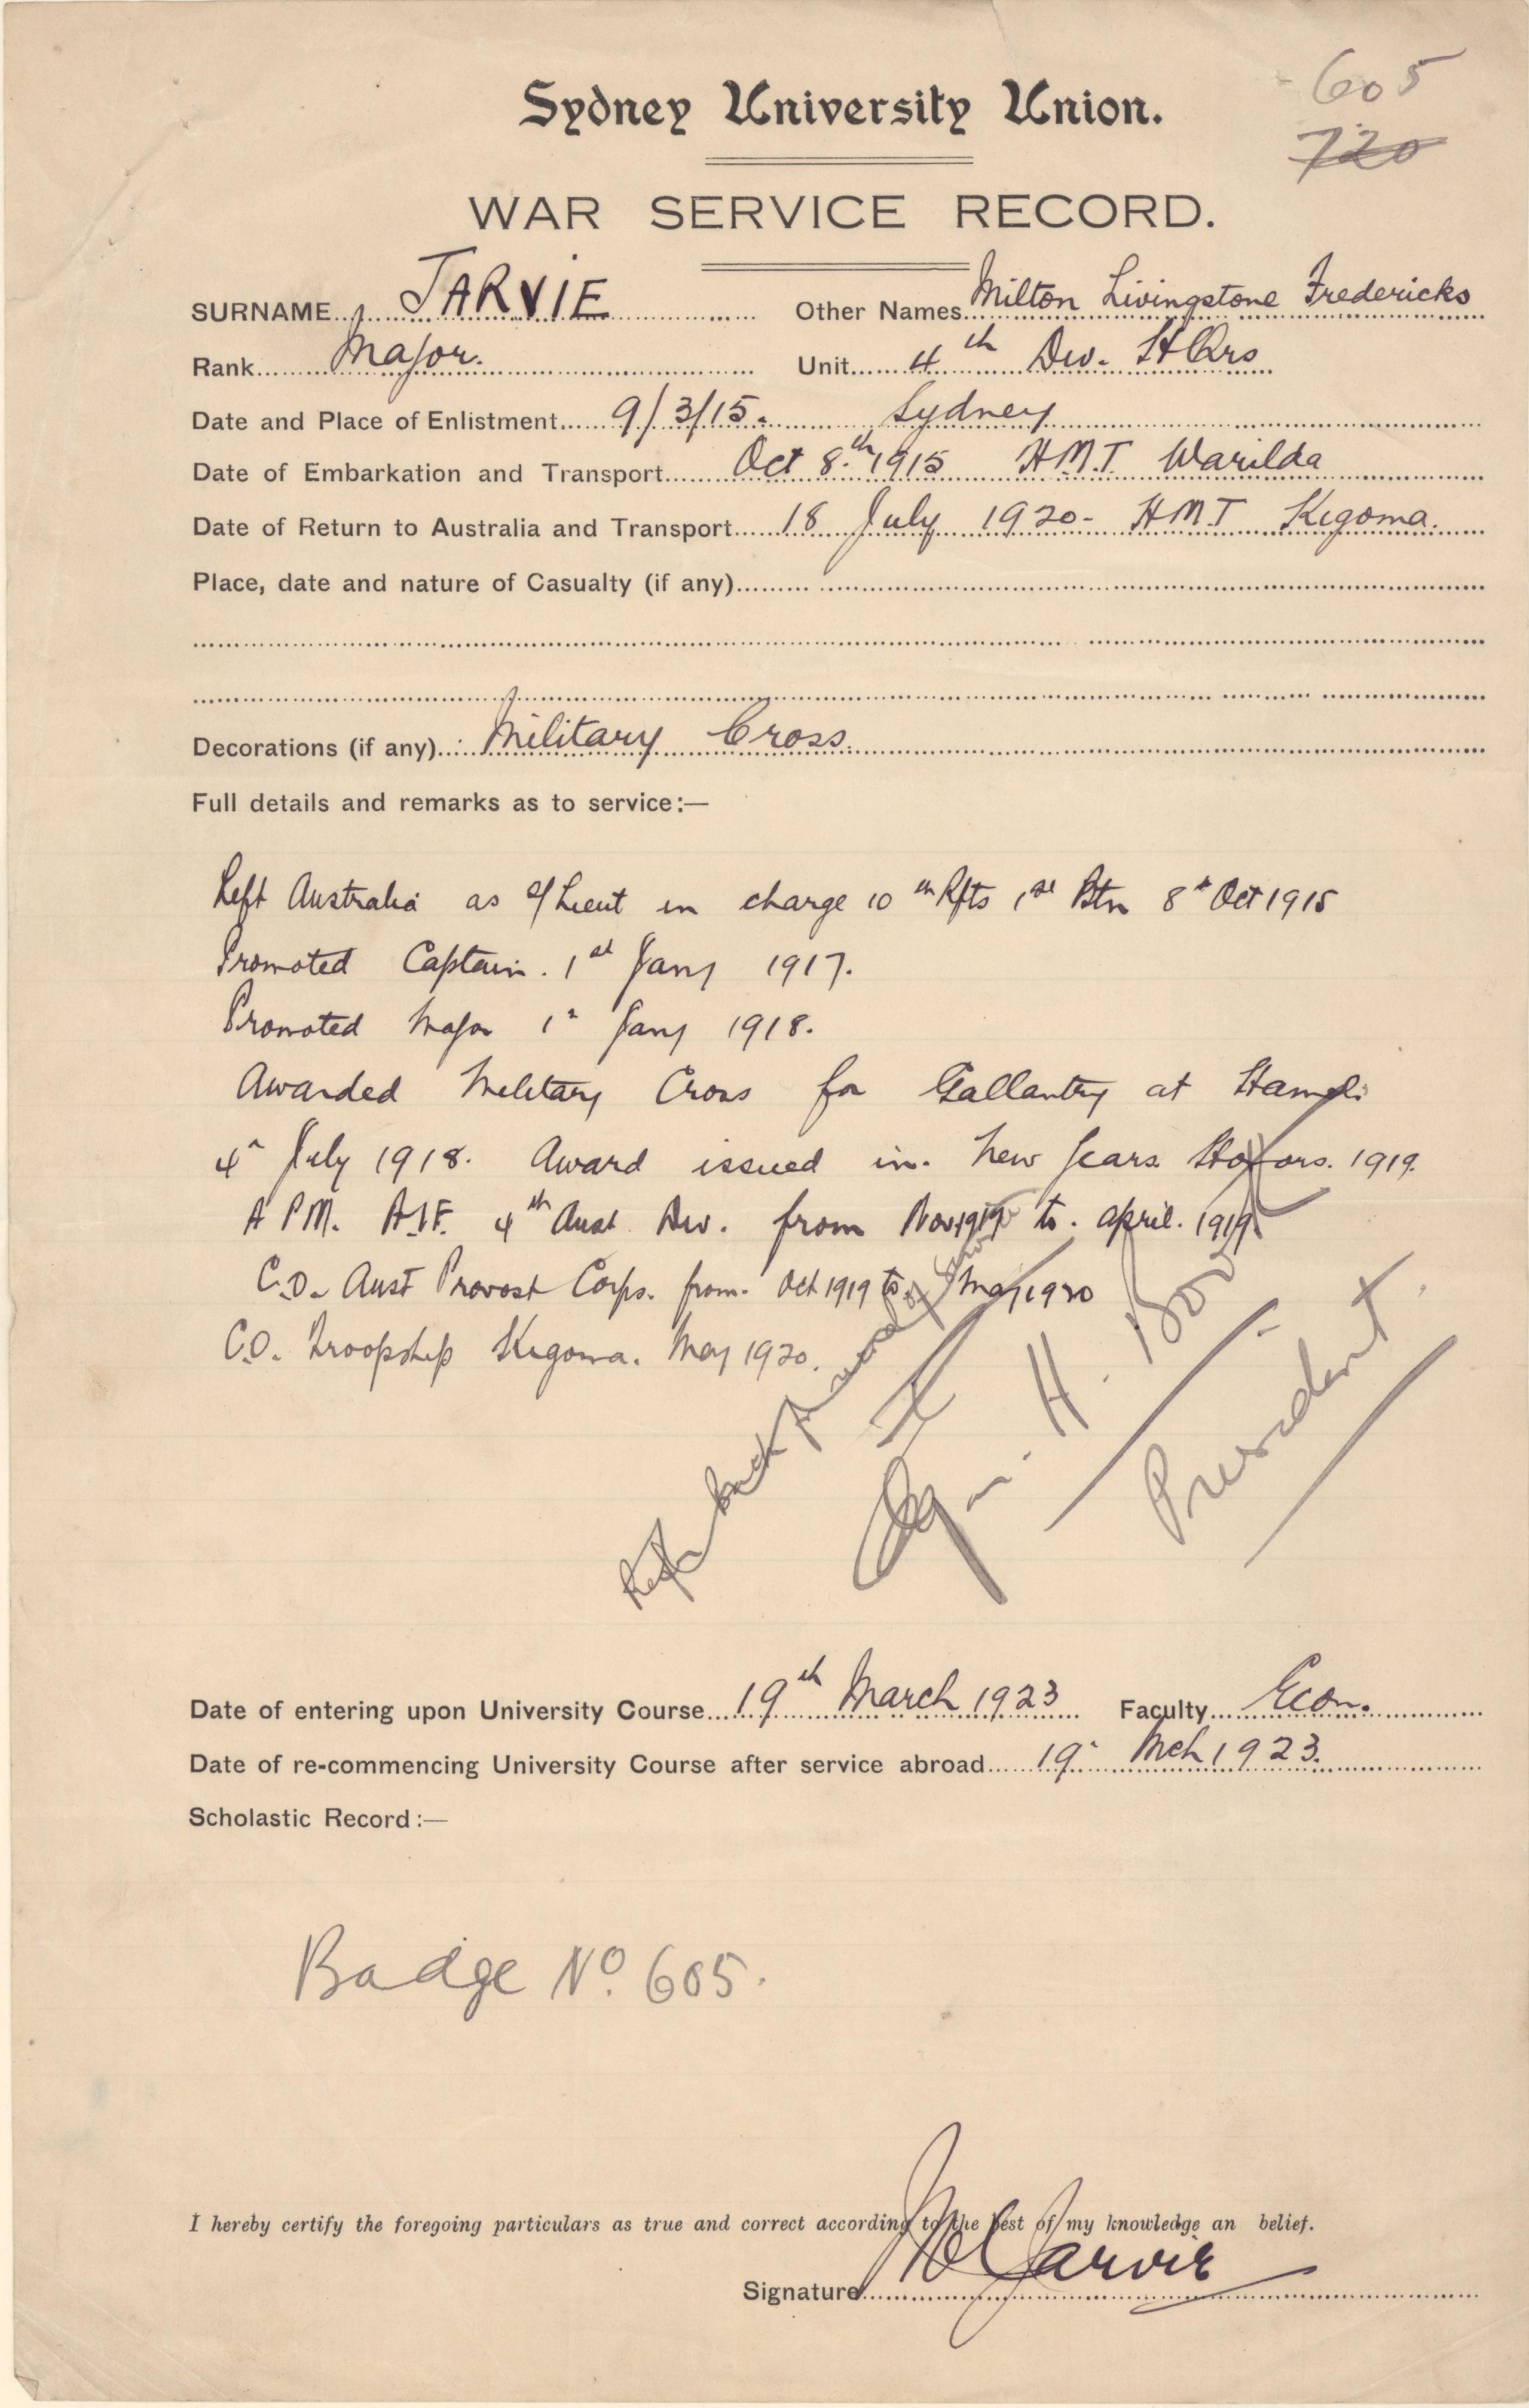 605
720
Sydney University Union.
WAR SERVICE RECORD.
SURNAME JARVIE Other Names Milton Livingstone Fredericks
Rank Major. Unit 4th Div. HQrs
Date and Place of Enlistment 9/3/15. Sydney
Date of Embarkation and Transport Oct 8th 1915 H.M.T. Warilda
Date of Return to Australia and Transport 18 July 1920- H.M.T Kigoma.
Place, date and nature of Casualty (if any)
Decorations (if any) Military Cross.
Full details and remarks as to service:—
Left Australia as 2/Lieut in charge 10th Rfts 1st Btn 8th Oct 1915
Promoted Captain. 1st Jany 1917.
Promoted Major 1st Jany 1918.
Awarded Military Cross for Gallantry at Hamel:
4th July 1918. Award issued in. New Years Honors. 1919.
A P.M. A.I.F. 4th Aust Div. from Nov to. April. 1919.
C.O. Aust Provost Corps. from. Oct 1919 to. May 1920
C.O. Troopship Kigoma. May 1920.
Refer back for
H.
President
Date of entering upon University Course 19th March 1923 Faculty Econ.
Date of re-commencing University Course after service abroad 19th Mch 1923.
Scholastic Record:—
Badge No. 605.
I hereby certify the foregoing particulars as true and correct according to the best of my knowledge an belief.
Signature Jarvie